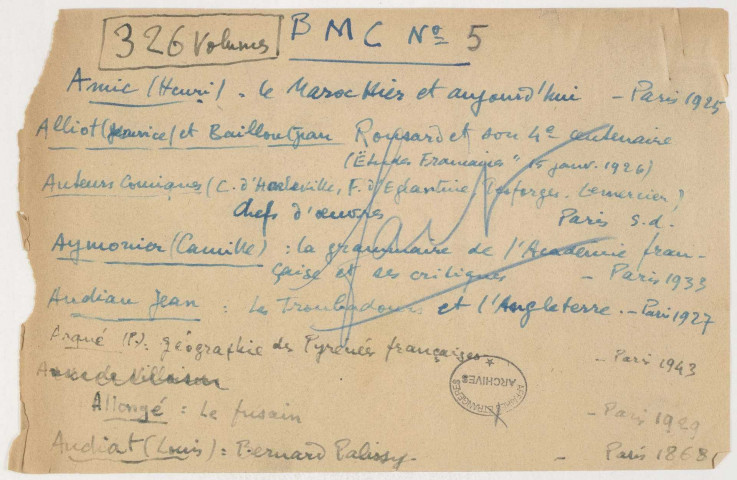 326 Volumes BMC No 5
Amic (Henri). Le Maroc Hier et aujourd'hui - Paris 1925
Alliot (Maurice) et Baillou (Jean Ronsard et son 4e centenaire
(Études Françaises" 15 janv. 1926)
Auteurs Comiques (C. d'Harleville, F. d'Eglantine, Desforges. Lemercier)
chefs d'œuvres Paris s.d.
Aymonier (Camille) : la grammaire de l'Académie fran-
çaise et ses critiques - Paris 1933
Audiau Jean : Les Troubadours et l'Angleterre. - Paris 1927
Arqué (P.). géographie des Pyrénées françaises - Paris 1943
Allongé : Le fusain - Paris 1929
Audiat (Louis) : Bernard Palissy - Paris 1868
AFFAIRES ETRANGERES
ARCHIVES